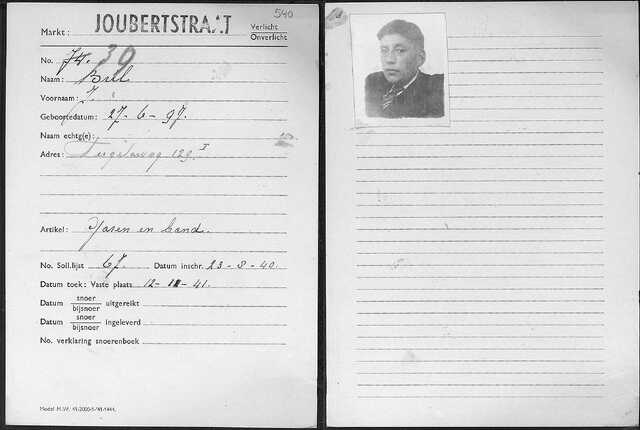 540
Markt: JOUBERTSTRAAT Verlicht
Onverlicht
No. 74. 39
Naam: Bril
Voornaam: J.
Geboortedatum: 27-6-97.
Naam echtg(e):
Adres: 129 I
Artikel: Garen en band.
No. Soll.lijst 67 Datum inschr. 23-8-40.
Datum toek: Vaste plaats 12-11-41.
Datum snoer
bijsnoer uitgereikt
Datum snoer
bijsnoer ingeleverd
No. verklaring snoerenboek
Model M.W.